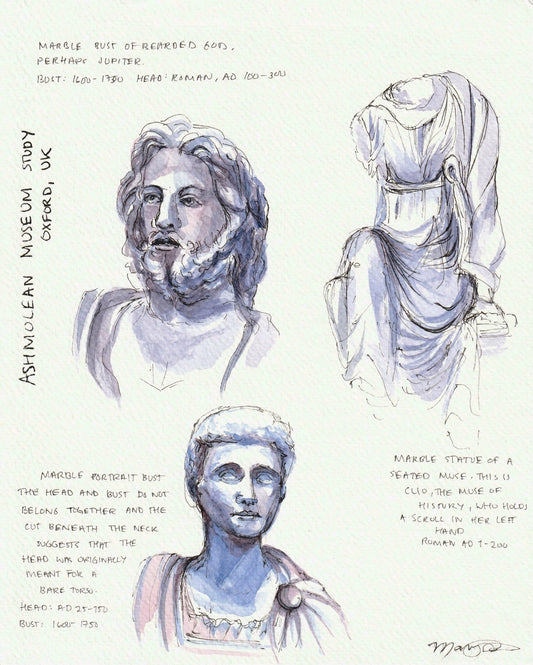 MARBLE BUST OF BEARDED GOD,
PERHAPS JUPITER.
BUST: 1600-1750 HEAD: ROMAN, AD 100-300
ASHMOLEAN MUSEUM STUDY
OXFORD, UK
MARBLE PORTRAIT BUST
THE HEAD AND BUST DO NOT
BELONG TOGETHER AND THE
CUT BENEATH THE NECK
SUGGESTS THAT THE
HEAD WAS ORIGINALLY
MEANT FOR A
BARE TORSO.
HEAD: AD 25-150
BUST: 1600-1750
MARBLE STATUE OF A
SEATED MUSE. THIS IS
CLIO, THE MUSE OF
HISTORY, WHO HOLDS
A SCROLL IN HER LEFT
HAND
ROMAN AD 1-200